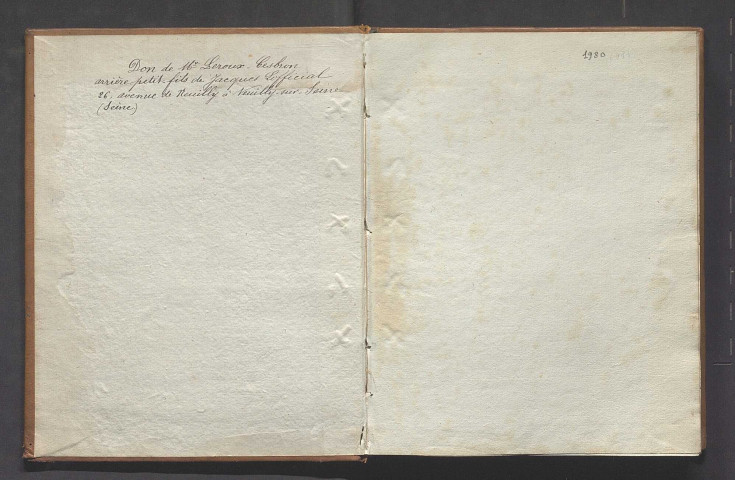 Don de Mr Leroux-Cesbron
arrière petit-fils de Jacques Lofficial
26, avenue de Neuilly à Neuilly-sur-Seine
(Seine)
1980